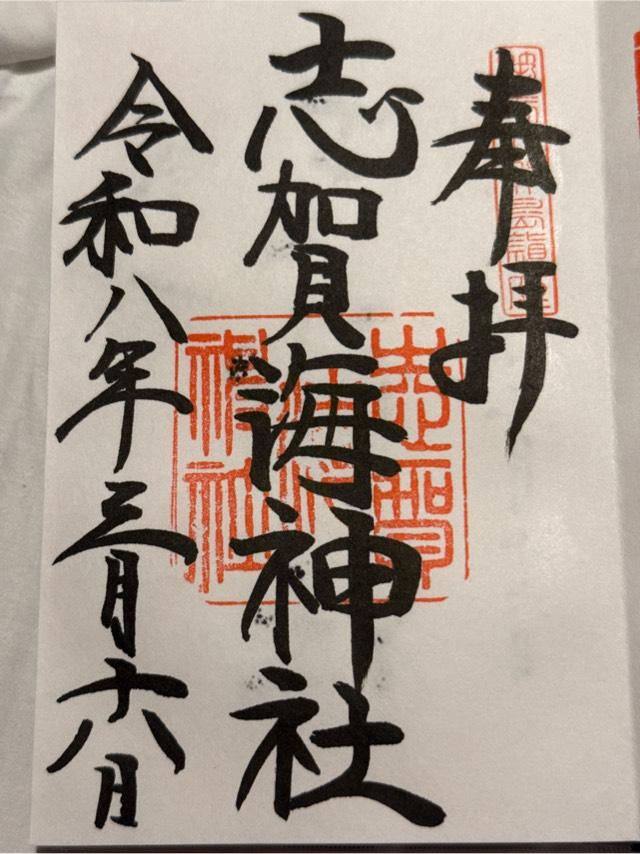 奉拝
志賀海神社
令和八年三月十八日
志賀
神社